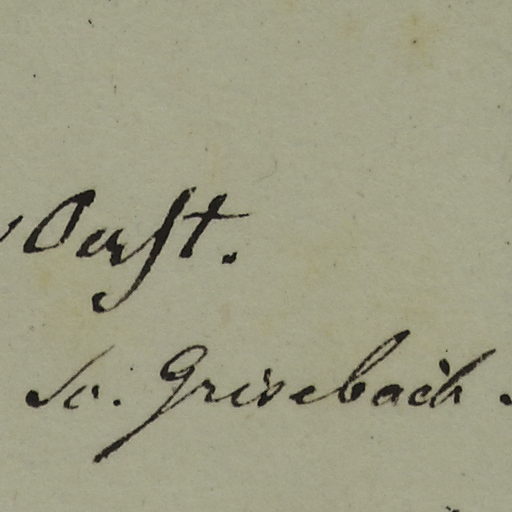 Oerst.
Sc. Grisebach.